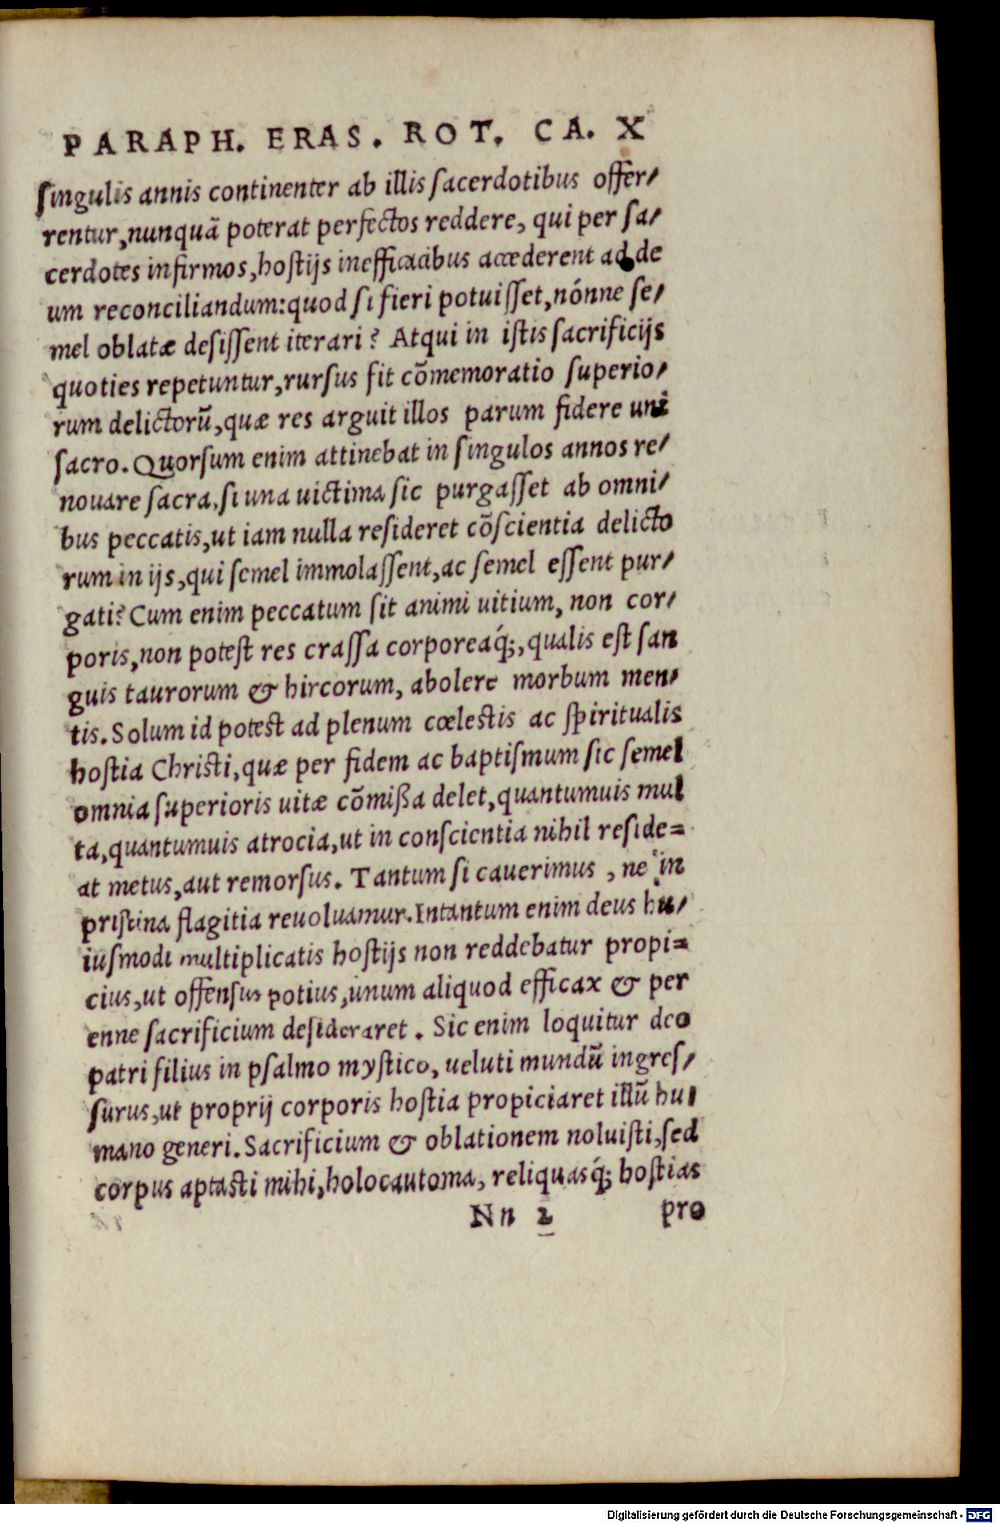 PARAPH. ERAS. ROT. CA. X
ſingulis annis continenter ab illis ſacerdotibus offer/
rentur, nunquā poterat perfectos reddere, qui per ſa/
cerdotes infirmos, hoſtijs inefficacibus accederent ad de
um reconciliandum: quod ſi fieri potuiſſet, nónne ſe/
mel oblatæ deſiſſent iterari? Atqui in iſtis ſacrificijs
quoties repetuntur, rurſus fit cōmemoratio ſuperio/
rum delictorū, quæ res arguit illos parum fidere uni
ſacro. Quorſum enim attinebat in ſingulos annos re/
nouare ſacra, ſi una uictima ſic purgaſſet ab omni/
bus peccatis, ut iam nulla reſideret cōſcientia delicto
rum in ijs, qui ſemel immolaſſent, ac ſemel eſſent pur/
gati? Cum enim peccatum ſit animi uitium, non cor/
poris, non poteſt res craſſa corporeaq́;, qualis eſt ſan
guis taurorum & hircorum, abolere morbum men/
tis. Solum id poteſt ad plenum cœleſtis ac ſpiritualis
hoſtia Chriſti, quæ per fidem ac baptiſmum ſic ſemel
omnia ſuperioris uitæ cōmißa delet, quantumuis mul
ta, quantumuis atrocia, ut in conſcientia nihil reſide=
at metus, aut remorſus. Tantum ſi cauerimus, ne in
priſtina flagitia reuoluamur. Intantum enim deus hu/
iuſmodi multiplicatis hoſtijs non reddebatur propi=
cius, ut offenſus potius, unum aliquod efficax & per
enne ſacrificium deſideraret. Sic enim loquitur deo
patri filius in pſalmo myſtico, ueluti mundū ingreſ/
ſurus, ut proprij corporis hoſtia propiciaret illū hu/
mano generi. Sacrificium & oblationem noluiſti, ſed
corpus aptaſti mihi, holocautoma, reliquasq́; hoſtias
Nn 2 pro
Digitalisierung gefördert durch die Deutsche Forschungsgemeinschaft - DFG